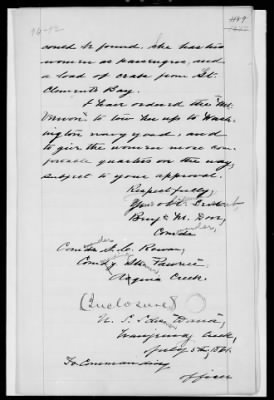 449
could be found. She has two
women as passengers, and
a load of crabs from St.
Clements Bay.
I have ordered the "Mt.
Vernon" to tow her up to Wash-
ington navy yard, and
to give the women more com-
quarters on the way,
subject to your approval.
Respectfully,
Your Obt. Servt,
Benj. M. Dove,
Comder
Comdr. S. C. Rowan,
Comdg. Str. Pawnee
Aquia Creek.
(Enclosure)
U. S. S. Dana,
Creek,
July 5th, 1861.
To Commanding
officer